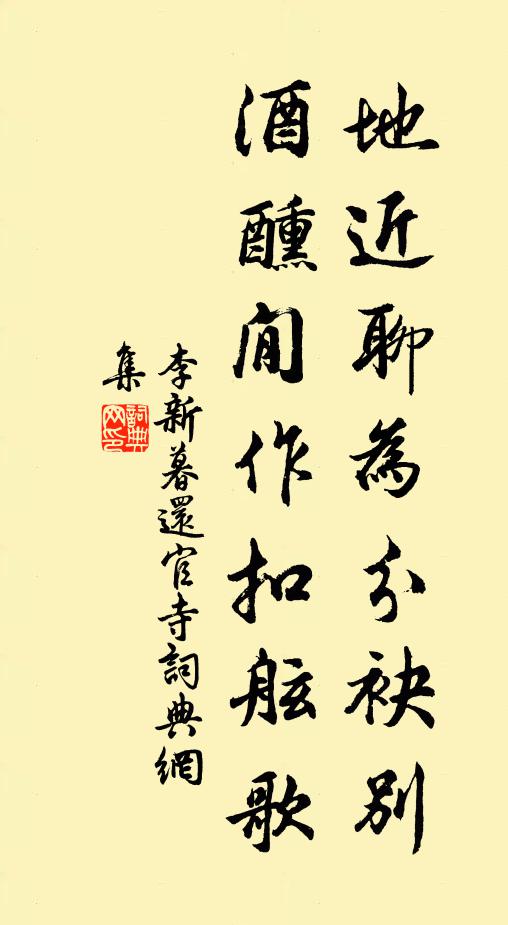 地近聊為分袂別
酒醺閒作扣舷歌
李新暮還官寺詞典網
集
詞典網印